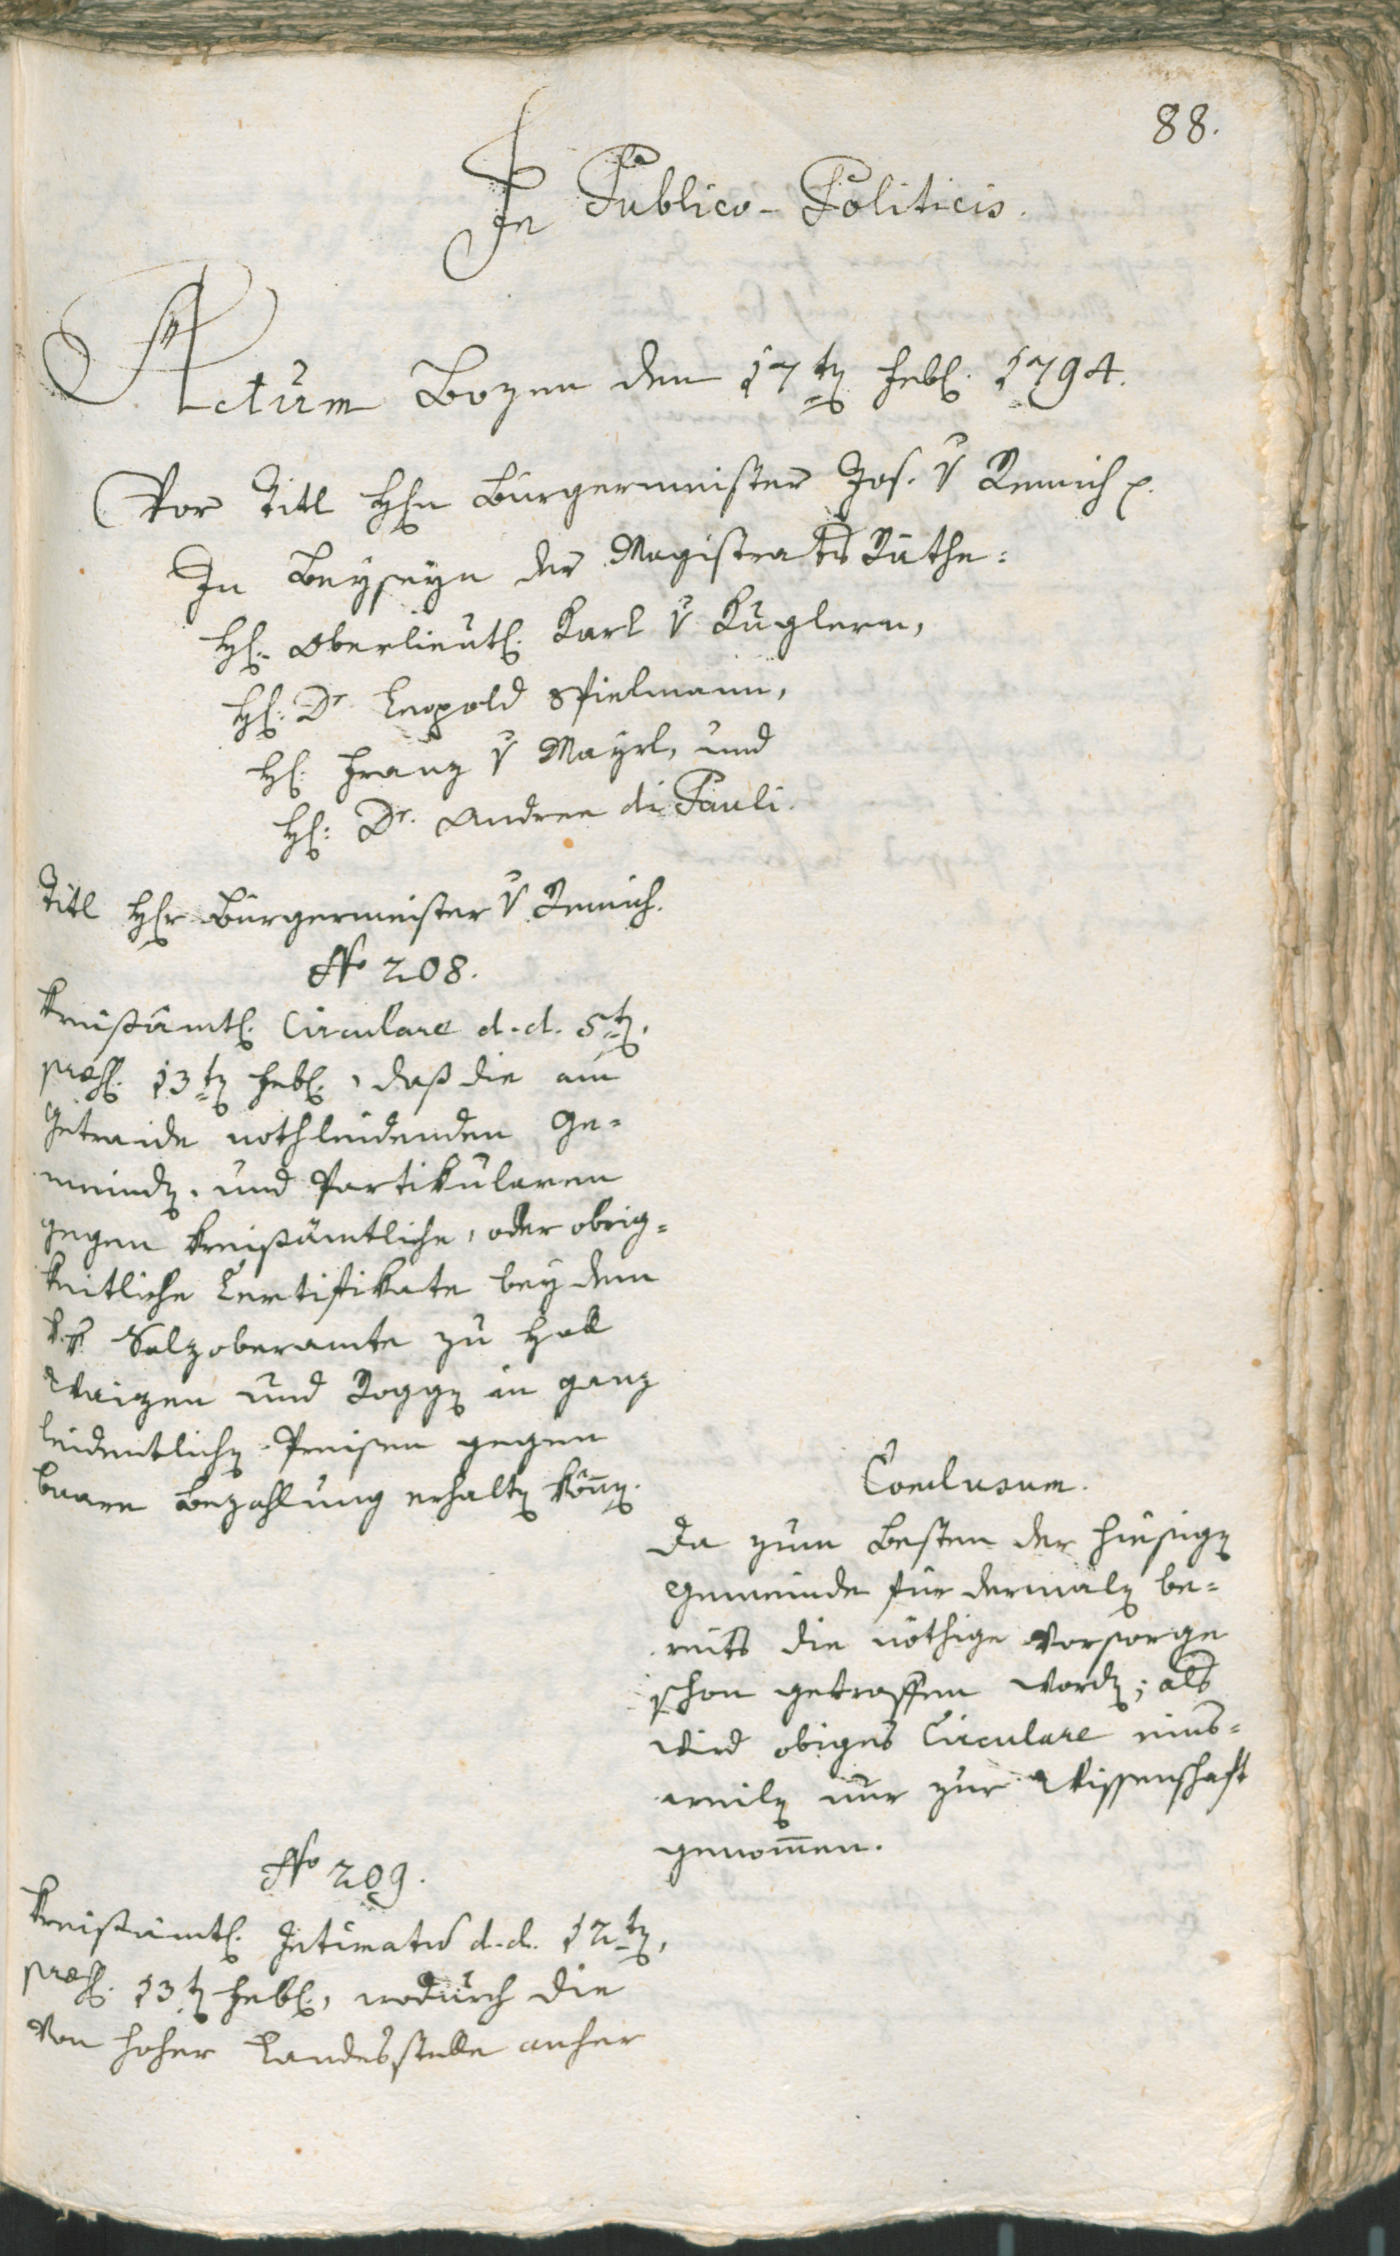 88.
In Publico-Politicis.
Actum Bozen den 17tn Febr. 1794.
Vor Titl Hhn Bürgermeister Jos. v Remich p.
In Beyseyn der Magistrats Räthe:
H: Oberlieut: Karl v Kuglern,
H: Dr. Leopold Spielmann,
H: Franz v Mayrl, und
H: Dr. Andree di Pauli.
Titl Hhr Bürgermeister v Remich.
No 208.
Kreisämtl: Circulare d. d. 5tn,
præs: 13tn Febr:, daß die am
Getraide nothleidenden Ge=
meindn, und Partikularen
gegen kreisämtliche, oder obrig=
keitliche Certifikate bey dem
k. k. Salzoberamte zu Hall
Waizen und Roggn in ganz
leidentlichn Preisen gegen
baare Bezahlung erhaltn könn̄n.
Conclusum.
Da zum Besten der hiesign
Gemeinde für dermaln be=
reits die nöthige Vorsorge
schon getroffen wordn; als
wird obiges Circulare eins=
weiln nur zur Wissenschaft
genom̄en.
No 209.
Kreisämtl: Intimatum d. d. 12tn,
præs: 13tn Febr:, wodurch die
von hoher Landesstelle anher